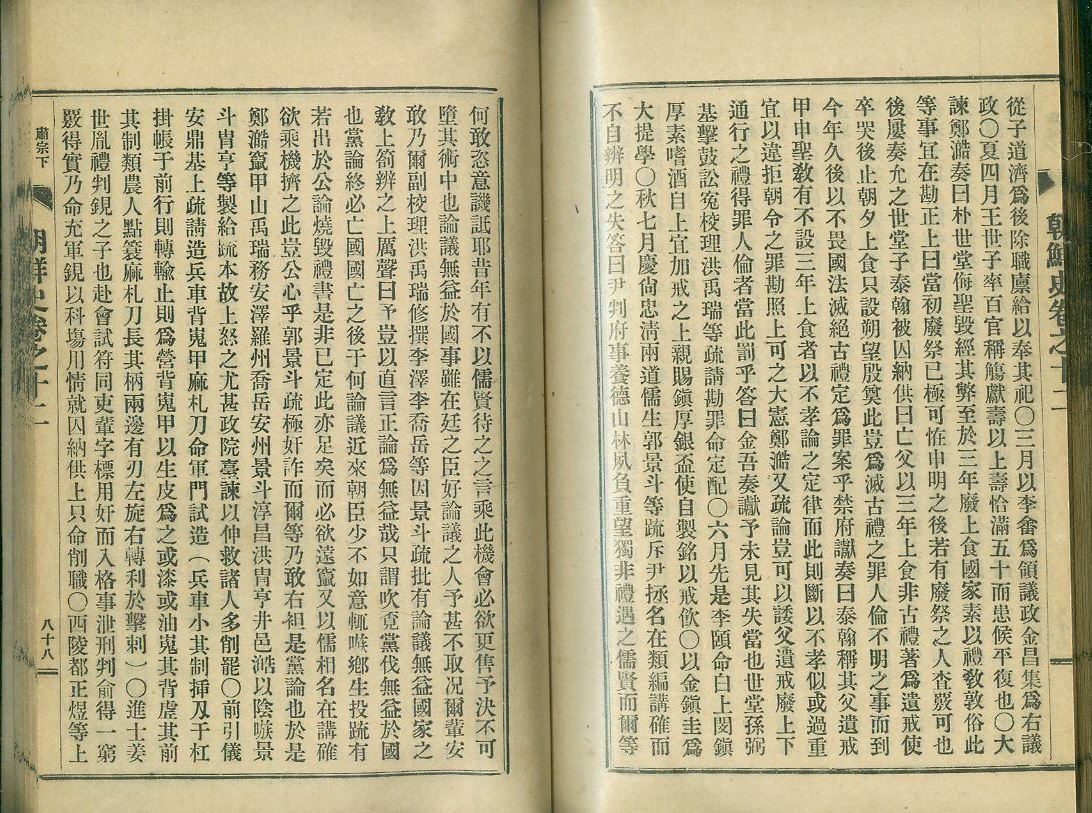 朝鮮史卷之十二
從子道濟爲後除職廩給以奉其祀○三月以李畬爲領議政金昌集爲右議
政○夏四月王世子率百官稱觴獻壽以上壽恰滿五十而患候平復也○大
諫鄭澔奏曰朴世堂侮聖毀經其弊至於三年廢上食國家素以禮敎敦俗此
等事宜在勘正上曰當初廢祭已極可恠申明之後若有廢祭之人査覈可也
後屢奏允之世堂子泰翰被囚納供曰亡父以三年上食非古禮著爲遺戒使
卒哭後止朝夕上食只設朔望殷奠此豈爲滅古禮之罪人倫不明之事而到
今年久後以不畏國法滅絕古禮定爲罪案乎禁府讞奏曰泰翰稱其父遺戒
甲申聖敎有不設三年上食者以不孝論之定律而此則斷以不孝似或過重
宜以違拒朝令之罪勘照上可之大憲鄭澔又疏論豈可以諉父遺戒廢上下
通行之禮得罪人倫者當此罰乎答曰金吾奏讞予未見其失當也世堂孫弼
基擊鼓訟寃校理洪禹瑞等疏請勘罪命定配○六月先是李頤命白上閔鎭
厚素嗜酒自上宜加戒之上親賜鎭厚銀盃使自製銘以戒飮○以金鎭圭爲
大提學○秋七月慶尙忠淸兩道儒生郭景斗等疏斥尹拯名在類編講確而
不自辨明之失答曰尹判府事養德山林夙負重望獨非禮遇之儒賢而爾等
何敢恣意譏詆耶昔年有不以儒賢待之之言乘此機會必欲更售予決不可
墮其術中也論議無益於國事雖在廷之臣好論議之人予甚不取况爾輩安
敢乃爾副校理洪禹瑞修撰李澤李喬岳等因景斗疏批有論議無益國家之
敎上箚辨之上厲聲曰予豈以直言正論爲無益哉只謂吹覔黨伐無益於國
也黨論終必亡國國亡之後于何論議近來朝臣少不如意輒嗾鄕生投疏有
若出於公論燒毀禮書是非已定此亦足矣而必欲遠竄又以儒相名在講確
欲乘機擠之此豈公心乎郭景斗疏極奸詐而爾等乃敢右袒是黨論也於是
鄭澔竄甲山禹瑞務安澤羅州喬岳安州景斗淳昌洪冑亨井邑澔以陰嗾景
斗冑亨等製給疏本故上怒之尤甚政院臺諫以伸救諸人多削罷○前引儀
安鼎基上疏請造兵車背嵬甲麻札刀命軍門試造（兵車小其制揷刄于杠
掛帳于前行則轉輸止則爲營背嵬甲以生皮爲之或漆或油嵬其背虛其前
其制類農人點簑麻札刀長其柄兩邊有刃左旋右轉利於擊刺）○進士姜
世胤禮判鋧之子也赴會試符同吏輩字標用奸而入格事泄刑判兪得一窮
覈得實乃命充軍鋧以科塲用情就囚納供上只命削職○西陵都正煜等上
肅宗下
朝鮮史卷之十二
八十八